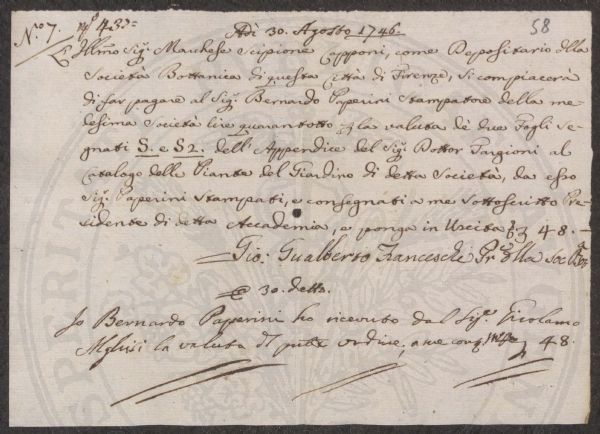 N.o 7.
58
Adì 30. Agosto 1746.
Illmo Sig. Marchese Scipione Capponi, come Depositario della
Società Bottanica di questa Città di Firenze, si compiacerà
di far pagare al Sig. Bernardo Paperini Stampatore della me-
desima Società lire quarantotto la valuta de due Fogli se-
gnati S. e S2. dell'Appendice del Sig. Dottor Targioni al
Catalogo delle Piante del Giardino di detta Società, da esso
Sig. Paperini Stampati, e consegnati a me Sottoscritto Pre-
sidente di detta Accademia, e ponga in Uscita 48.
Gio. Gualberto Franceschi
30. detto.
Io Bernardo Paperini ho ricevuto dal Sig. Girolamo
la valuta ordine, 48.